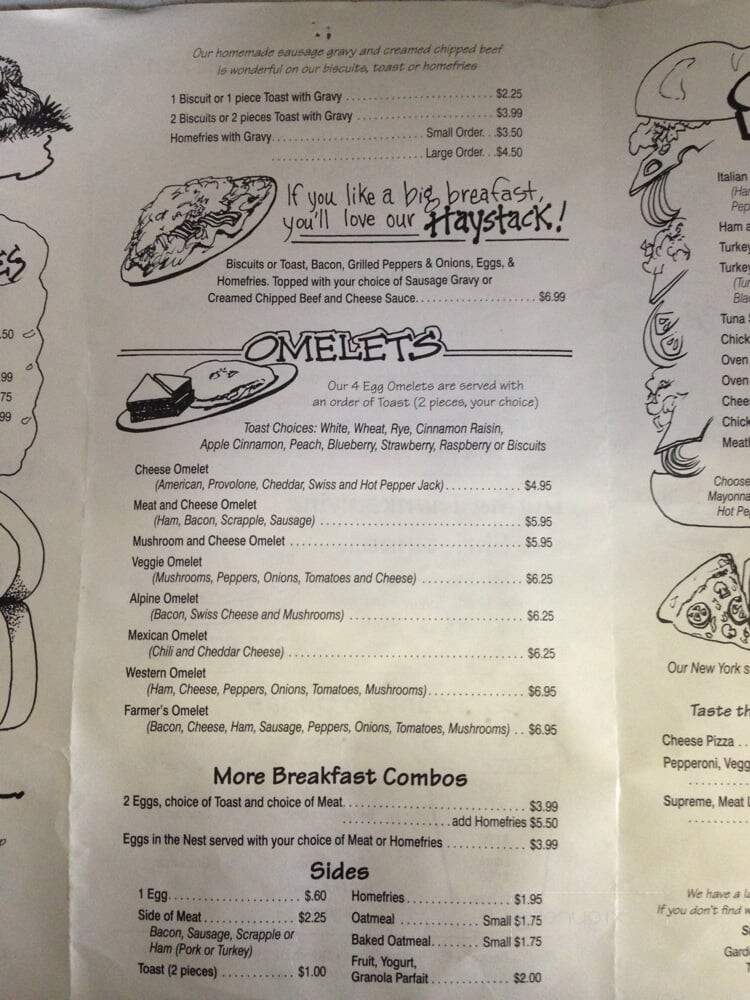 Our homemade sausage gravy and creamed chipped beef
is wonderful on our biscuits, toast or homefries
1 Biscuit or 1 piece Toast with Gravy . . . . . $2.25
2 Biscuits or 2 pieces Toast with Gravy . . . . . $3.99
Homefries with Gravy. . . . . Small Order. . .$3.50
. . . . . Large Order. . .$4.50
If you like a big breafast,
you'll love our Haystack!
Biscuits or Toast, Bacon, Grilled Peppers & Onions, Eggs, &
Homefries. Topped with your choice of Sausage Gravy or
Creamed Chipped Beef and Cheese Sauce. . . . . $6.99
OMELETS
Our 4 Egg Omelets are served with
an order of Toast (2 pieces, your choice)
Toast Choices: White, Wheat, Rye, Cinnamon Raisin,
Apple Cinnamon, Peach, Blueberry, Strawberry, Raspberry or Biscuits
Cheese Omelet
(American, Provolone, Cheddar, Swiss and Hot Pepper Jack) . . . . . $4.95
Meat and Cheese Omelet
(Ham, Bacon, Scrapple, Sausage) . . . . . $5.95
Mushroom and Cheese Omelet . . . . . $5.95
Veggie Omelet
(Mushrooms, Peppers, Onions, Tomatoes and Cheese) . . . . . $6.25
Alpine Omelet
(Bacon, Swiss Cheese and Mushrooms) . . . . . $6.25
Mexican Omelet
(Chili and Cheddar Cheese) . . . . . $6.25
Western Omelet
(Ham, Cheese, Peppers, Onions, Tomatoes, Mushrooms). . . . . $6.95
Farmer's Omelet
(Bacon, Cheese, Ham, Sausage, Peppers, Onions, Tomatoes, Mushrooms) . . $6.95
More Breakfast Combos
2 Eggs, choice of Toast and choice of Meat. . . . . $3.99
. . . . . add Homefries $5.50
Eggs in the Nest served with your choice of Meat or Homefries . . . . . $3.99
Sides
1 Egg. . . . . $.60
Side of Meat . . . . . $2.25
Bacon, Sausage, Scrapple or
Ham (Pork or Turkey)
Toast (2 pieces) . . . . . $1.00
Homefries. . . . . $1.95
Oatmeal . . . . . Small $1.75
Baked Oatmeal. . . . . Small $1.75
Fruit, Yogurt,
Granola Parfait . . . . . $2.00
.50
.99
.75
.99
Italian
(Ha
Pep
Ham a
Turkey
Turkey
(Tur
Bla
Tuna
Chick
Oven
Oven
Chee
Chick
Meat
Choose
Mayonna
Hot Pe
Our New York s
Taste th
Cheese Pizza . .
Pepperoni, Vegg
Supreme, Meat L
We have a la
If you don't find w
Gard